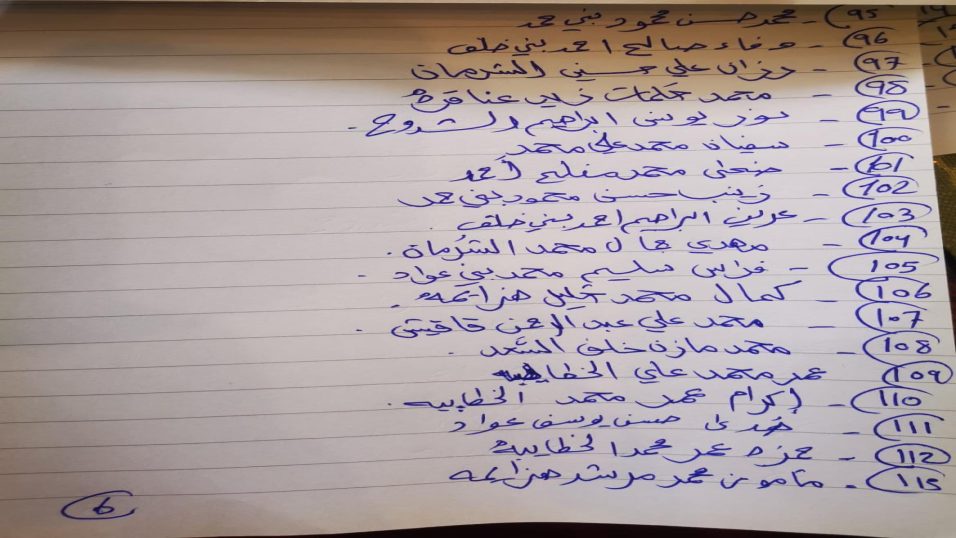 95 - محمد حسن محمود بني حمد
96 - وفاء صالح احمد بني خلف
97 - رزان علي حسني الشرمان
98 - محمد زيد عناقرة
99 - نور يونس ابراهيم الشروع.
100 - سفيان محمد علي محمد
101 - ضحى محمد مفلح أحمد
102 - زينب حسن محمود بني حمد
103 - عرين ابراهيم احمد بني خلف.
104 - مهدي جمال محمد الشرمان.
105 - فراس سليم محمد بني عواد.
106 - كمال محمد خليل هزايمه.
107 - محمد علي عبد الرحمن قاقيش.
108 - محمد مازن خلف السعد.
109 عمر محمد علي الخطايبه
110 - إكرام عمر محمد الخطايبه.
111 - حسن يوسف عواد
112 - حمزه عمر محمد الخطايبة
115 - مأمون محمد مرشد هزايمه
6